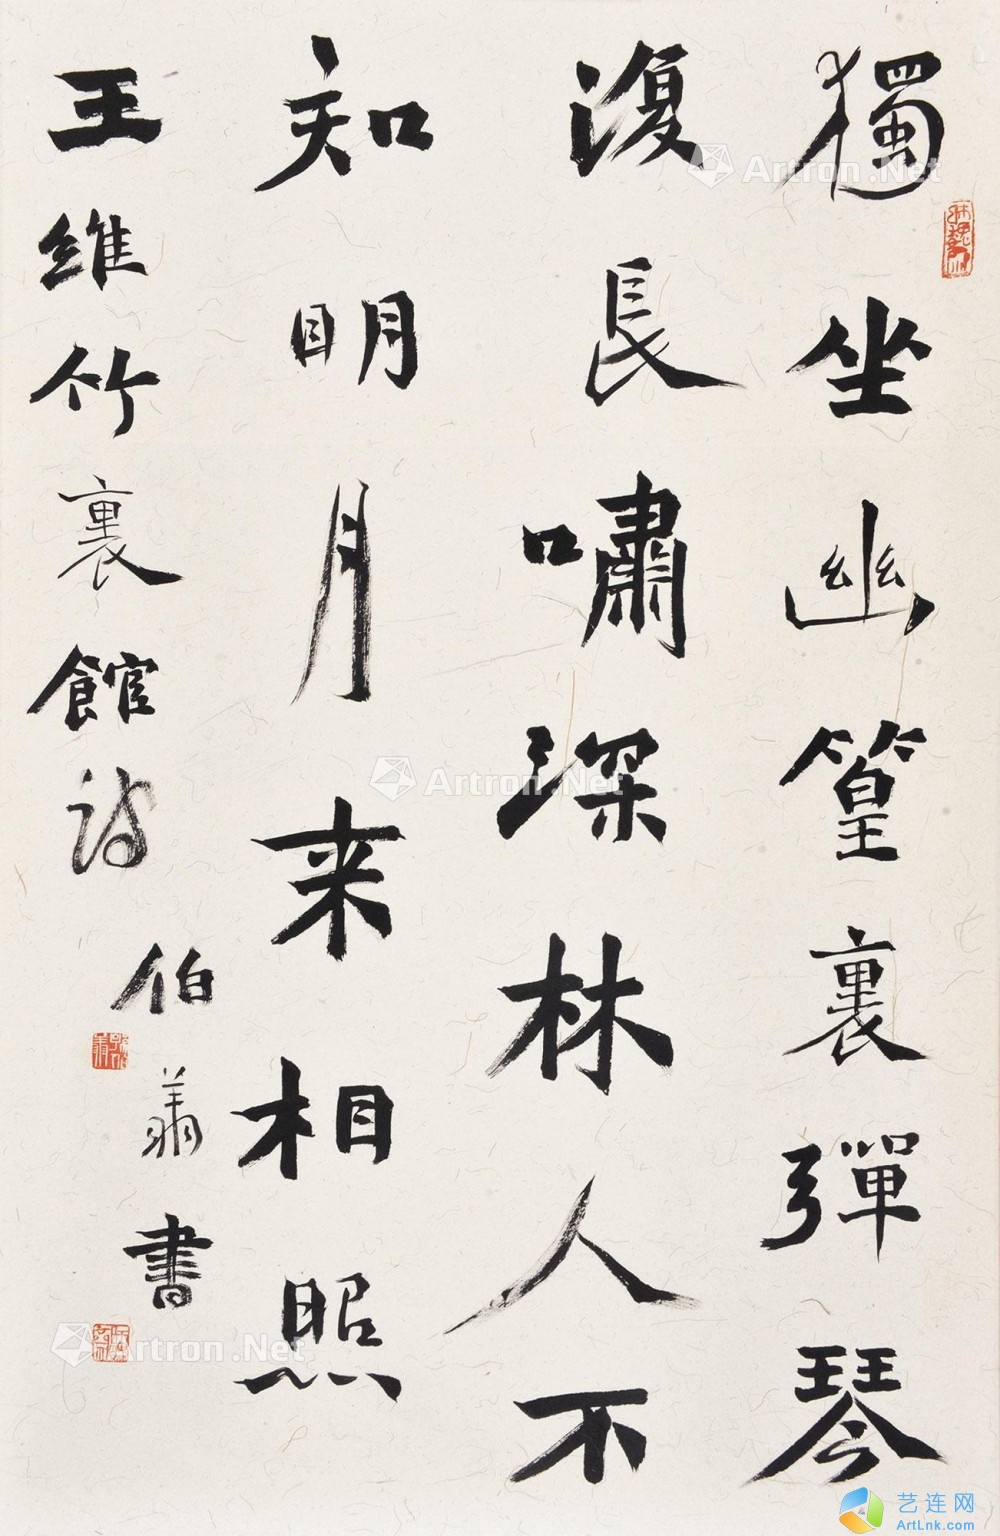 獨坐幽篁裏彈琴
復長嘯深林人不
知明月来相照
王維竹裏館詩
伯翔書
Artron.Net
Artron.Net
Artron.Net
艺连网
ArtLnk.com